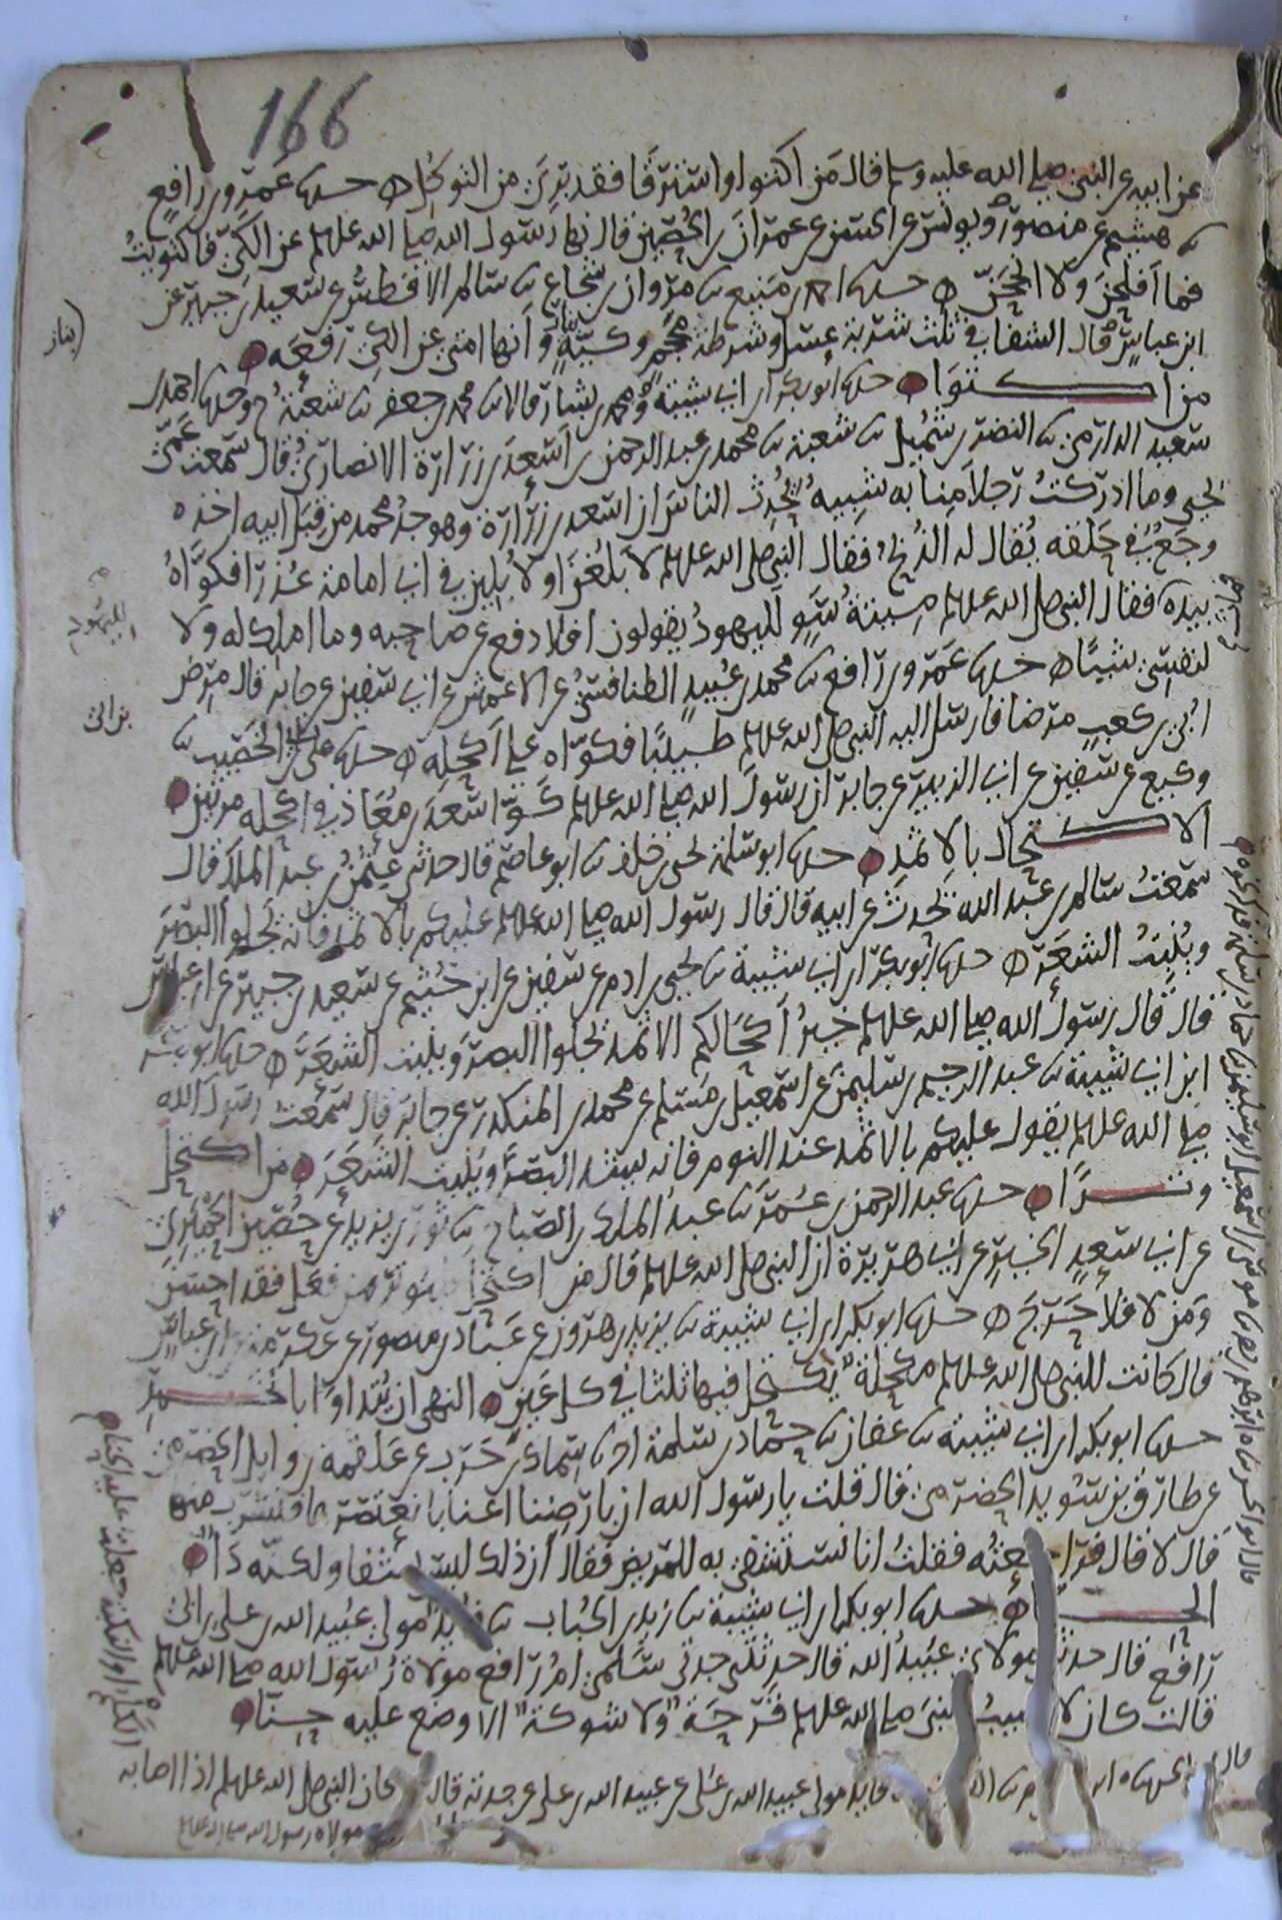 166
عن ابيه عن النبي صلى الله عليه وسلم قال من اكتوا او استرقا فقد برئ من التوكل ه حدثنا عمرو بن رافع
ثنا هشيم عن منصور ويونس عن الحسن عن عمران بن الحصين قال نها رسول الله صلى الله عليه وسلم عن الكي فاكتويت
فما افلحن ولا انجحن ه حدثنا احمد بن منيع ثنا مروان بن شجاع ثنا سالم الافطس عن سعيد بن جبير عن
ابن عباس قال الشفا في ثلث شربة عسل وشرطة محجم وكية نار وانها امتي عن الكي رفعه
من اكتوا حدثنا ابو بكر ابن ابي شيبة ومحمد بن بشار قالا ثنا محمد بن جعفر ثنا شعبة ح وحدثنا احمد بن
سعيد الدارمي ثنا النضر بن شميل ثنا شعبة ثنا محمد بن عبد الرحمن بن اسعد بن زرارة الانصاري قال سمعت عمي
يحيى وما ادركت رجلا منا به شبيه يحدث الناس ان اسعد بن زرارة وهو جد محمد من قبل ابيه اخذه
وجع في حلقه يقال له الذبح فقال النبي صلى الله عليه وسلم لابلغن او لابلين في ابي امامة عذرا فكواه
بيده فقال النبي صلى الله عليه وسلم ميتة سو لليهود يقولون افلا دفع عن صاحبه وما املك له ولا
لنفسي شيئا ه حدثنا عمرو بن رافع ثنا محمد بن عبيد الطنافسي عن الاعمش عن ابي سفين عن جابر قال مرض
ابي بن كعب مرضا فارسل اليه النبي صلى الله عليه وسلم طبيبا فكواه على اكحله ه حدثنا علي بن ابي الخصيب ثنا
وكيع عن سفين عن ابي الزبير عن جابر ان رسول الله صلى الله عليه وسلم كوا سعد بن معاذ في اكحله مرتين
الاكتحال بالاثمد حدثنا ابو سلمة يحيى بن خلف ثنا ابو عاصم قال حدثني عثمن بن عبد الملك قال
سمعت سالم بن عبد الله يحدث عن ابيه قال قال رسول الله صلى الله عليه وسلم عليكم بالاثمد فانه يجلوا البصر
وينبت الشعر ه حدثنا ابو بكر ابن ابي شيبة ثنا يحيى بن ادم عن سفين عن ابن خثيم عن سعيد بن جبير عن ابن عباس
قال قال رسول الله صلى الله عليه وسلم خير اكحالكم الاثمد يجلوا البصر وينبت الشعر ه حدثنا ابو بكر
ابن ابي شيبة ثنا عبد الرحيم بن سليمن عن اسمعيل بن مسلم عن محمد بن المنكدر عن جابر قال سمعت رسول الله
صلى الله عليه وسلم يقول عليكم بالاثمد عند النوم فانه يشد البصر وينبت الشعر من اكتحل
وترا حدثنا عبد الرحمن بن عمر ثنا عبد الملك بن الصباح ثنا ثور بن يزيد عن حصين الحميري
عن ابي سعد الخير عن ابي هريرة ان النبي صلى الله عليه وسلم قال من اكتحل فليوتر من فعل فقد احسن
ومن لا فلا حرج ه حدثنا ابو بكر ابن ابي شيبة ثنا يزيد بن هرون عن عباد بن منصور عن عكرمة عن ابن عباس
قال كانت للنبي صلى الله عليه وسلم مكحلة يكتحل فيها ثلثا في كل عين النهي ان يتداوا بالخمر
حدثنا ابو بكر ابن ابي شيبة ثنا عفان ثنا حماد بن سلمة انا سماك بن حرب عن علقمة بن وايل الحضرمي
عن طارق بن سويد الحضرمي قال قلت يا رسول الله ان بارضنا اعنابا نعتصرها فنشرب منها
قال لا قال فراجعته فقلت انا نستشفي به للمريض فقال ان ذلك ليس بشفا ولكنه دا
الحنا حدثنا ابو بكر ابن ابي شيبة ثنا زيد بن الحباب ثنا فايد مولى عبيد الله بن علي بن ابي
رافع قال حدثني مولاي عبيد الله قال حدثتني جدتي سلمى ام رافع مولاة رسول الله صلى الله عليه وسلم
قالت كان لا يصيب النبي صلى الله عليه وسلم قرحة ولا شوكة الا وضع عليه حنا
فايد مولى عبيد الله بن علي عن عبيد الله بن علي عن جدته قال كان النبي صلى الله عليه وسلم اذا اصابه
مولاة رسول الله صلى الله عليه وسلم
لليهود